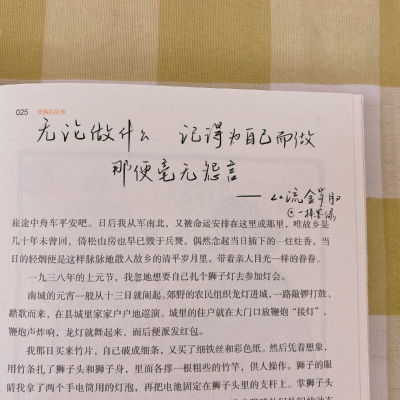 025
无论做什么 记得为自己而做
那便毫无怨言
——以流金岁月
旅途中舟车平安吧。日后我从军南北,又被命运安排在这里或那里,唯故乡是
几十年未曾回,倚松山房也早已毁于兵燹。偶然念起当日插下的一炷炷香,当
日的轻烟便是这样脉脉地散入故乡的清平岁月里,带着亲人目光一样的眷眷。
一九三八年的上元节,我忽地想要自己扎个狮子灯去参加灯会。
南城的元宵一般从十三日就闹起。郊野的农民组织龙灯进城,一路敲锣打鼓、
踏歌而来,在县城里家家户户地巡演。城里的住户就在大门口放鞭炮“接灯”,
鞭炮声炸响,龙灯就舞起来,而后便派发红包。
我那日买来竹片,自己破成细条,又买了细铁丝和彩色纸。然后凭着想象,
用竹条扎了狮子头和狮子身,里面各撑一根粗些的竹竿,供人操作。狮子的眼
睛我拿了两个手电筒用的灯泡,再把电池固定在狮子头里的支杆上。掌狮子头